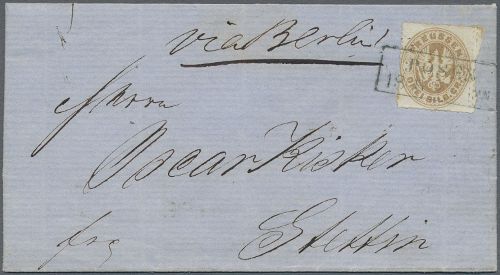 via Berlin
PREUSSEN
DREI SILB. GR.
POSEN
18
Herrn
Oscar Kisker
Stettin
frq